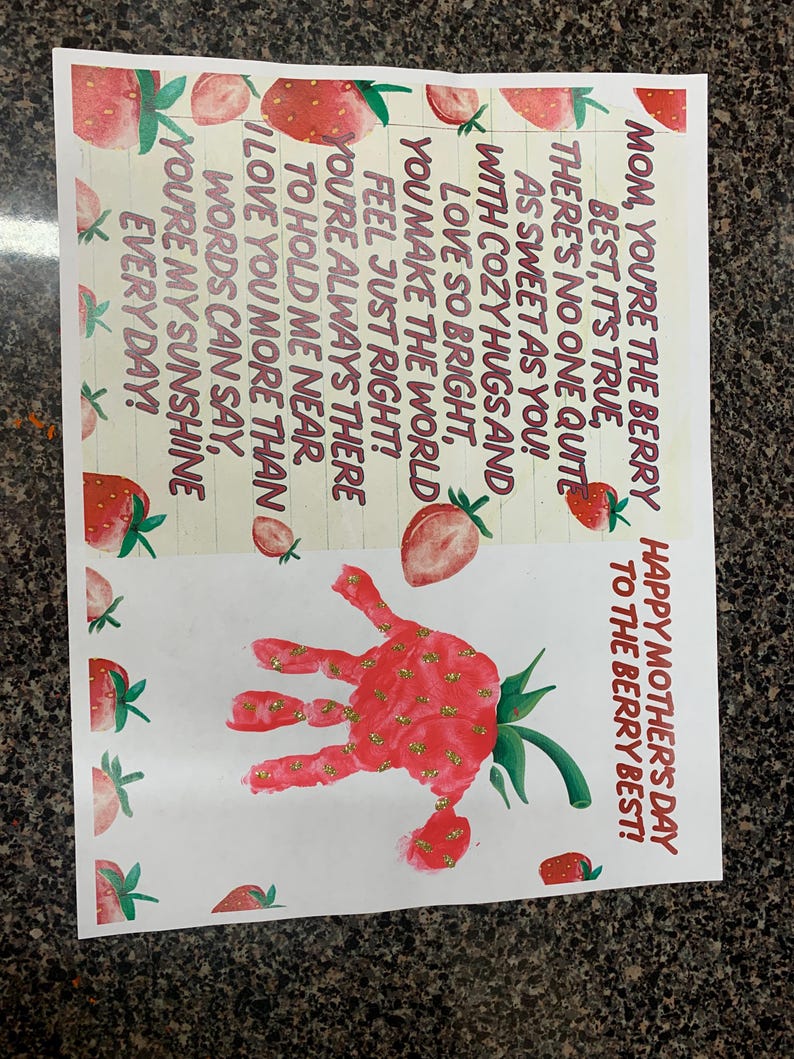 MOM, YOU'RE THE BERRY
BEST, IT'S TRUE,
THERE'S NO ONE QUITE
AS SWEET AS YOU!
WITH COZY HUGS AND
LOVE SO BRIGHT,
YOU MAKE THE WORLD
FEEL JUST RIGHT!
YOU'RE ALWAYS THERE
TO HOLD ME NEAR
I LOVE YOU MORE THAN
WORDS CAN SAY,
YOU'RE MY SUNSHINE
EVERY DAY!
HAPPY MOTHER'S DAY
TO THE BERRY BEST!